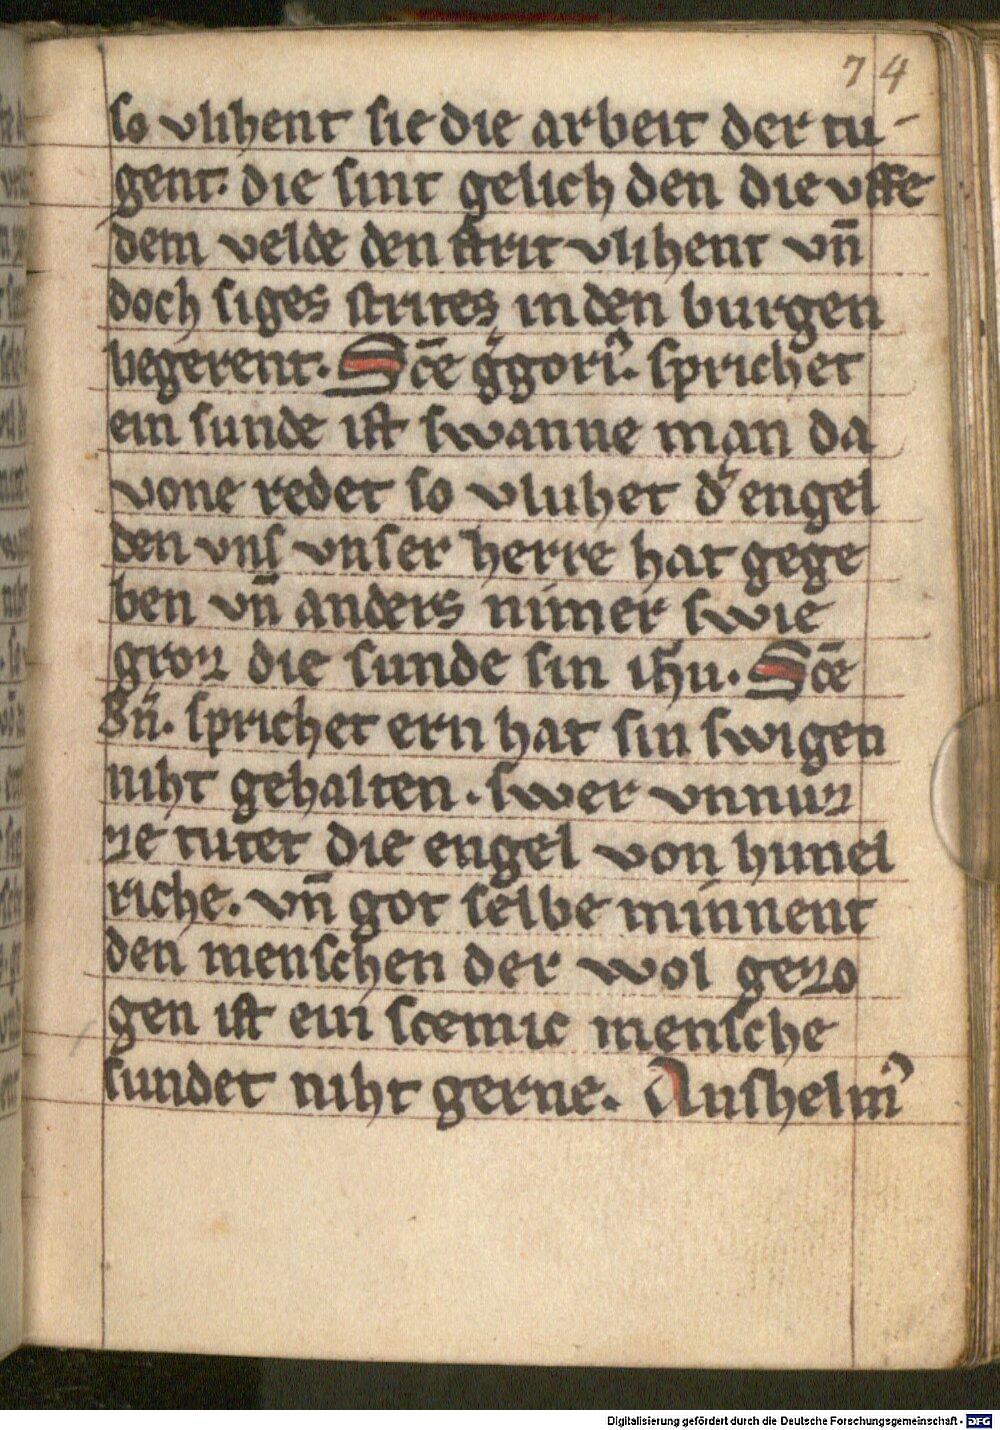 74
so vlihent sie die arbeit der tu-
gent. die sint gelich den die vffe
dem velde den strit vlihent vn̄
doch siges strites in den burgen
begerent. Sc̄e g̊gori᷒. sprichet
ein sunde ist swanne man da
vone redet so vluhet d᷒ engel
den vns vnser herre hat gege
ben vn̄ anders nimer swie
groz die sunde sin ih̄u. Sc̄e
B̄n. sprichet ern hat sin swigen
niht gehalten. swer vnnuz
ze tutet die engel von himel
riche. vn̄ got selbe minnent
den menschen der wol gezo
gen ist ein scemic mensche
sundet niht gerne. Anshelm᷒
Digitalisierung gefördert durch die Deutsche Forschungsgemeinschaft - DFG